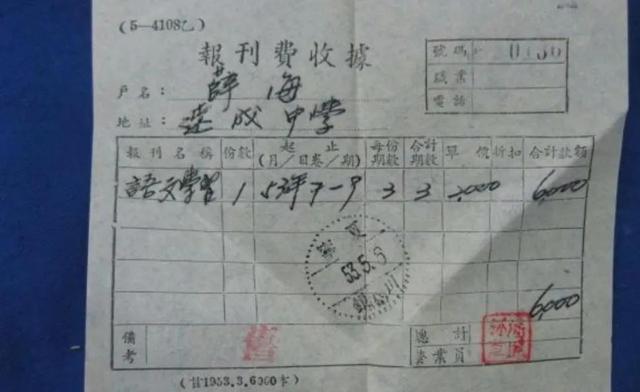 (5—4108乙)
報刊費收據
號碼 0156
職業
電話
戶名: 薛海
地址: 達成中學
報刊名稱 份數 起止(月/日卷/期) 每份期數 合計期數 單價 折扣 合計款額
語文學習 1 53年7—9 3 3 2000 6000
53.5.9
6000
備考
總計
營業員
(甘1953.3.6000本)